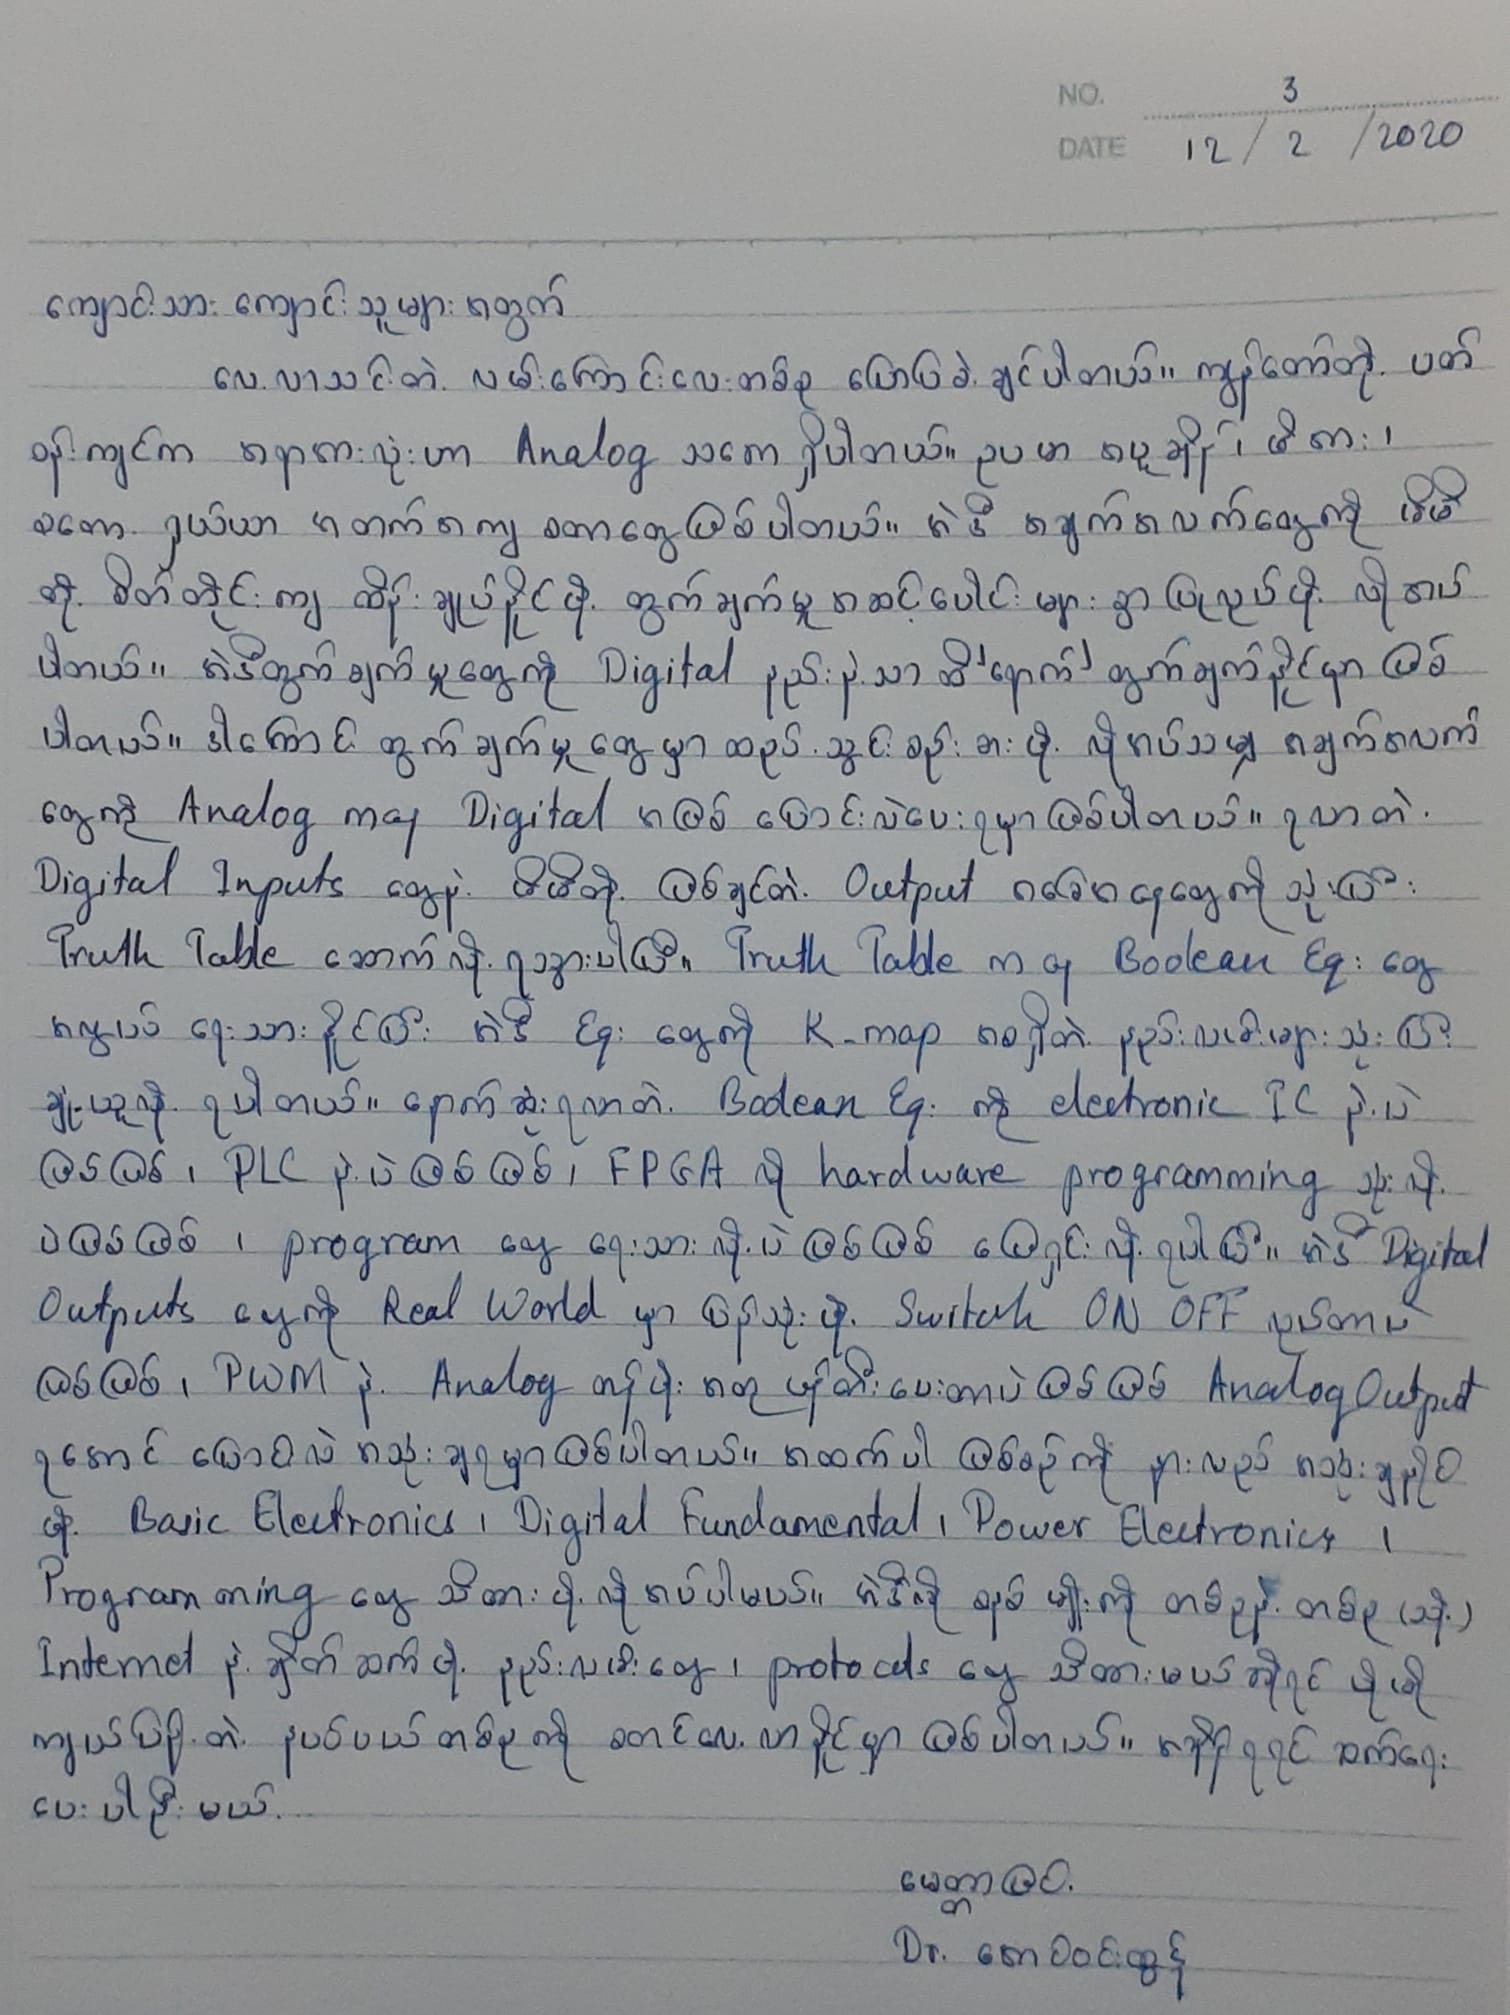 NO. 3
DATE 12 / 2 / 2020
ကျောင်းသား ကျောင်းသူများ အတွက်
လေ့လာသင့်တဲ့ လမ်းကြောင်းလေးတစ်ခု ပြောပြခဲ့ချင်ပါတယ်။ ကျွန်တော်တို့ ပတ်
ဝန်းကျင်က အရာအားလုံးဟာ Analog သဘော ရှိပါတယ်။ ဥပမာ အပူချိန်၊ ဖိအား၊
စသော ရုပ်ပိုင်း အတက်အကျ စတာတွေဖြစ်ပါတယ်။ အဲဒီ အချက်အလက်တွေကို မိမိ
တို့ စိတ်တိုင်းကျ ထိန်းချုပ်နိုင်ဖို့ တွက်ချက်မှု အဆင့်ပေါင်း များစွာ ပြုလုပ်ဖို့ လိုအပ်
ပါတယ်။ အဲဒီတွက်ချက်မှုတွေကို Digital နည်းနဲ့သာ ထိရောက်စွာ တွက်ချက်နိုင်မှာ ဖြစ်
ပါတယ်။ ဒါကြောင့် တွက်ချက်မှု တွေမှာ ထည့်သွင်းစဉ်းစားဖို့ လိုအပ်သမျှ အချက်အလက်
တွေကို Analog ကနေ Digital အဖြစ် ပြောင်းလဲပေးရမှာဖြစ်ပါတယ်။ ရလာတဲ့
Digital Inputs တွေနဲ့ မိမိတို့ ဖြစ်ချင်တဲ့ Output အခြေအနေတွေကို သုံးပြီး
Truth Table ဆောက်လို့ ရသွားပါပြီ။ Truth Table ကနေ Boolean Eq: တွေ
အလွယ် ရေးသားနိုင်ပြီး အဲဒီ Eq: တွေကို K-map အစရှိတဲ့ နည်းလမ်းများသုံးပြီး
ချုံ့ယူလို့ ရပါတယ်။ နောက်ဆုံးရလာတဲ့ Boolean Eq: ကို electronic IC နဲ့ပဲ
ဖြစ်ဖြစ်၊ PLC နဲ့ပဲဖြစ်ဖြစ်၊ FPGA လို hardware programming သုံးလို့
ပဲဖြစ်ဖြစ်၊ program တွေ ရေးသားလို့ပဲဖြစ်ဖြစ် ဖြေရှင်းလို့ ရပါပြီ။ အဲဒီ Digital
Outputs တွေကို Real World မှာ ပြန်သုံးဖို့ Switch ON OFF လုပ်တာပဲ
ဖြစ်ဖြစ်၊ PWM နဲ့ Analog တန်ဖိုး အတု ဖန်တီးပေးတာပဲဖြစ်ဖြစ် Analog Output
ရအောင် ပြောင်းလဲ အသုံးချရမှာဖြစ်ပါတယ်။ အထက်ပါ ဖြစ်စဉ်ကို နားလည် အသုံးချနိုင်
ဖို့ Basic Electronics၊ Digital Fundamental၊ Power Electronics၊
Programming တွေ သိထားဖို့ လိုအပ်ပါမယ်။ အဲဒီလို စနစ်မျိုးကို တစ်ခုနဲ့ တစ်ခု (သို့)
Internet နဲ့ ချိတ်ဆက်ဖို့ နည်းလမ်းတွေ၊ protocols တွေ သိထားမယ်ဆိုရင် ပိုမို
ကျယ်ပြန့်တဲ့ နယ်ပယ်တစ်ခုကို စတင်လေ့လာနိုင်မှာ ဖြစ်ပါတယ်။ အချိန်ရရင် ဆက်ရေး
ပေးပါဦးမယ်....
မေတ္တာဖြင့်
Dr. အောင်ဝင်းထွန်